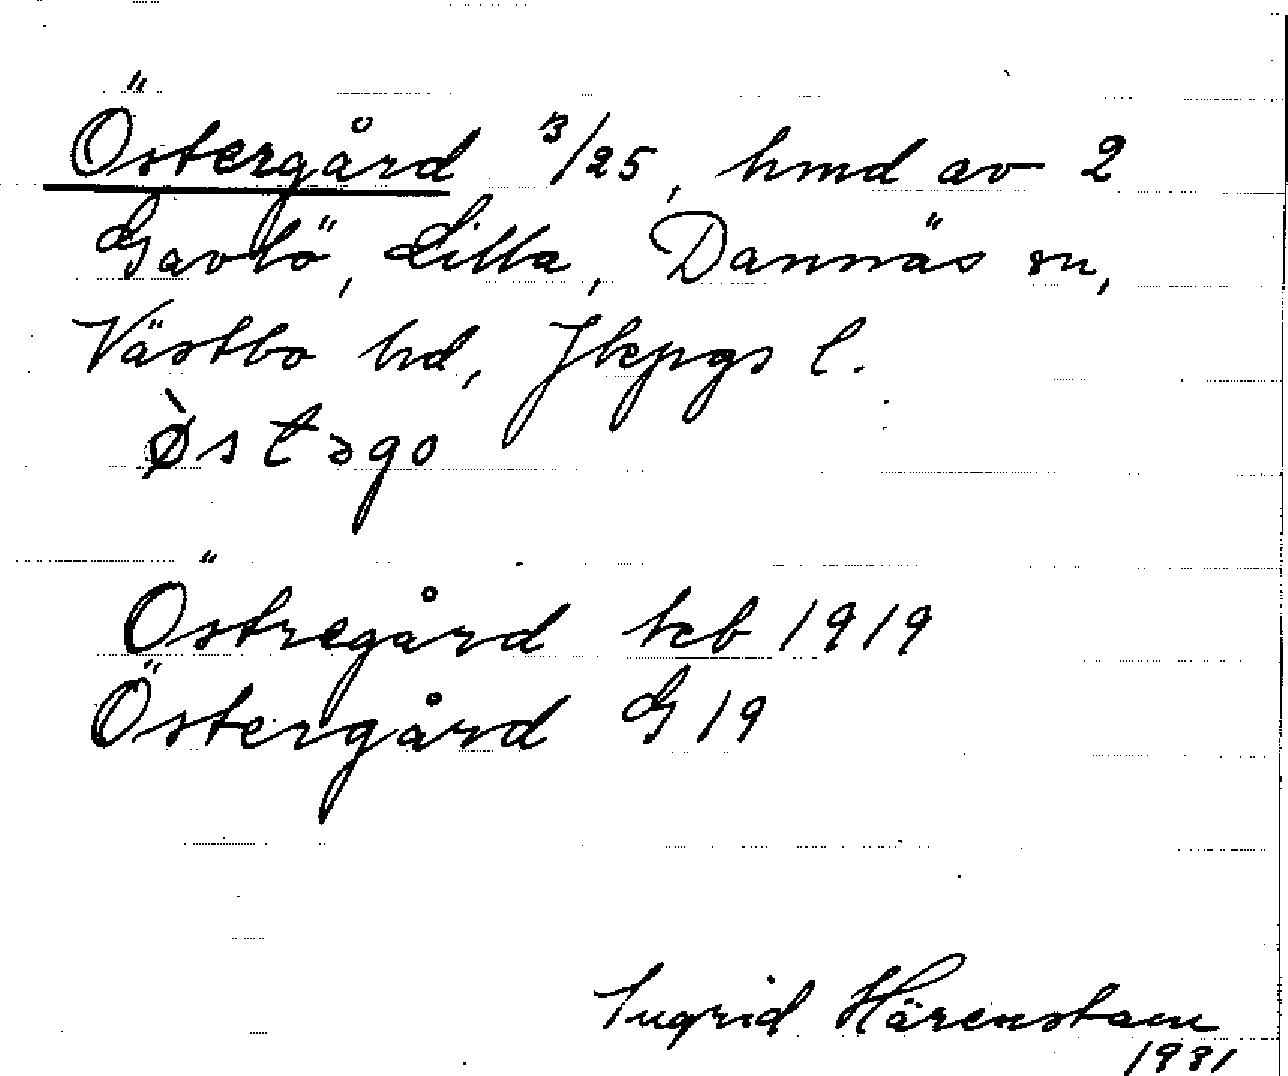 Östergård 3/25, hmd av 2
Gavlö, Lilla, Dannäs sn,
Västbo hd, Jkpgs l.
Ø̀stəgo
Östregård kcb 1919
Östergård G 19
Ingrid Härenstam
1931